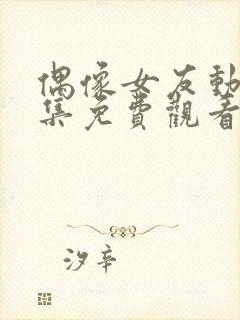 偶像女友動
集免費觀看
汐辛